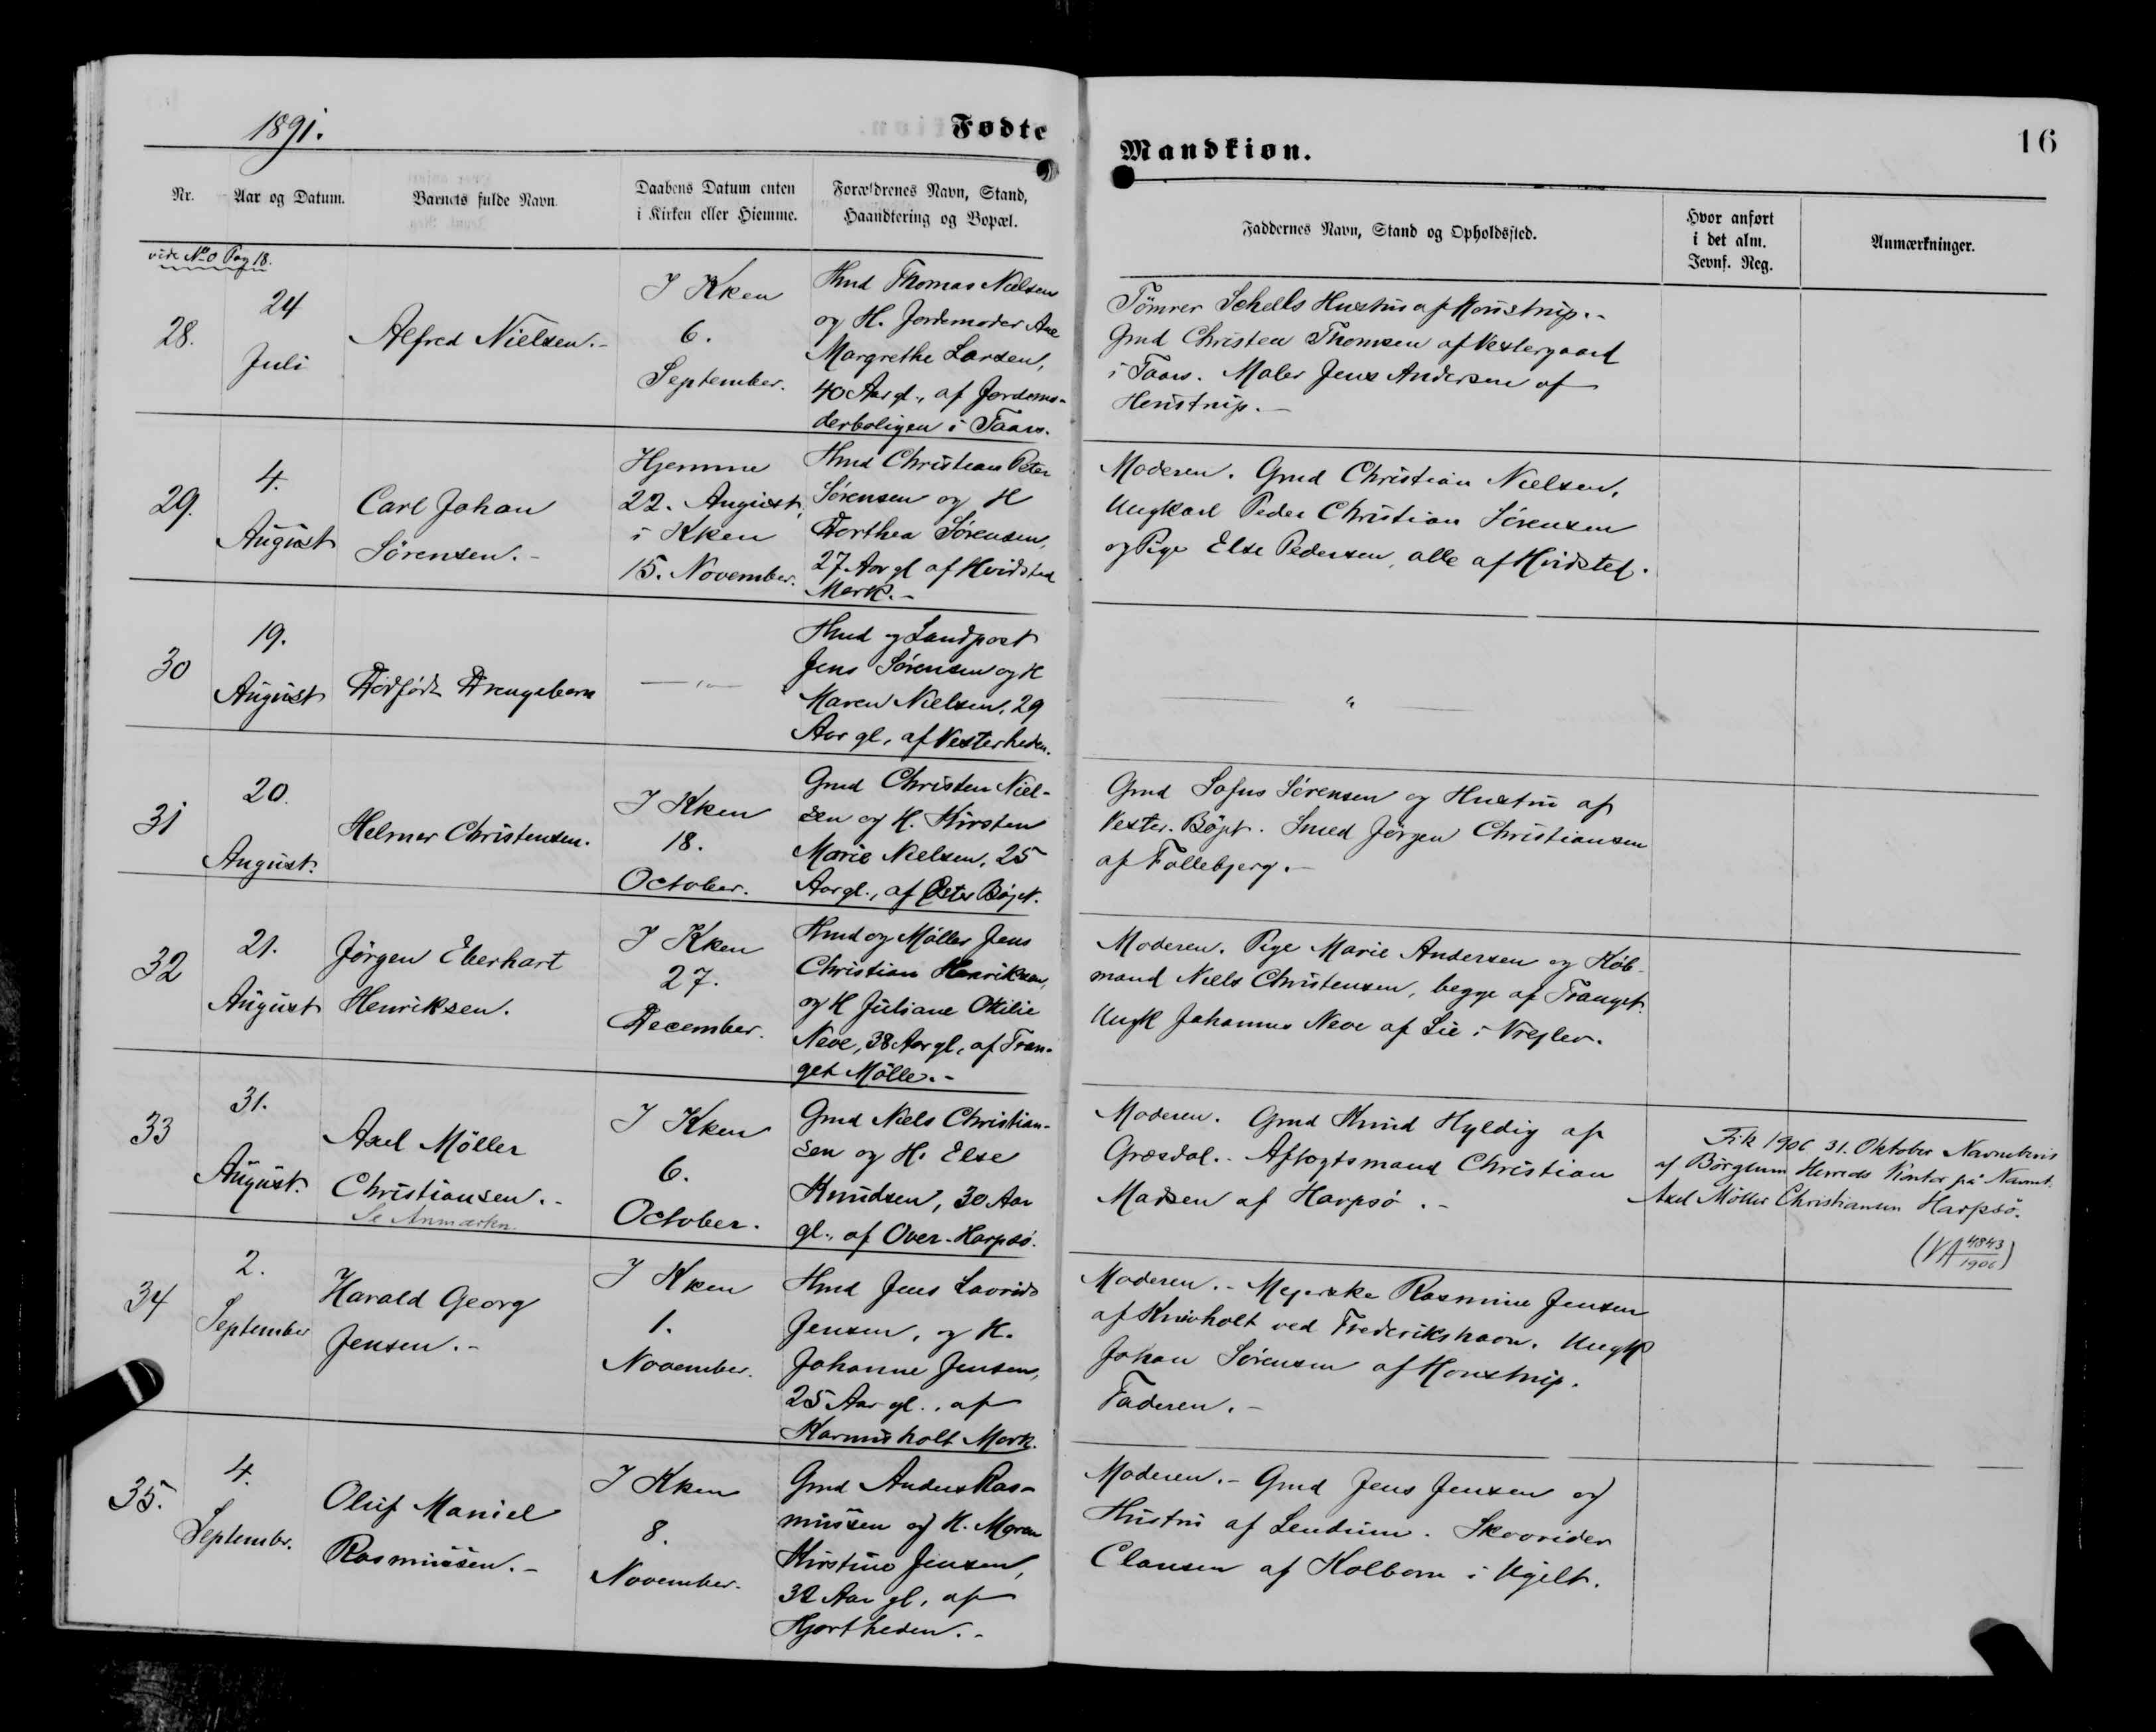 1891.
Fødte
Mandkiøn.
16
Nr.
Aar og Datum.
Barnets fulde Navn.
Daabens Datum enten
i Kirken eller Hiemme.
Forældrenes Navn, Stand,
Haandtering og Bopæl.
Faddernes Navn, Stand og Opholdssted.
Hvor anført
i det alm.
Jevnf. Reg.
Anmærkninger.
vide No 0 Pag 18.
28.
24
Juli
Alfred Nielsen.-
I Kken
6.
September.
Hmd Thomas Nielsen
og H. Jordemoder Ane
Margrethe Larsen,
40 Aar gl., af Jordemo-
derboligen i Taars.
Tömrer Schells Hustru af
Gmd Christen Thomsen af Vestergaard
i Taars. Maler Jens Andersen af
29.
4.
August
Carl Johan
Sörensen.-
Hjemme
22. August,
i Kken
15. November.
Hmd Christian Peter
Sörensen og H
Dorthea Sörensen,
27 Aar gl af Hvidsted
Mark.-
Moderen. Gmd Christian Nielsen.
Ungkarl Peder Christian Sörensen
og Pige Else Pedersen, alle af Hvidsted.
30
19.
August
Dödfödt Drengebarn
— " —
Hmd og Landpost
Jens Sörensen og H
Maren Nielsen, 29
Aar gl, af Vesterheden.
— " —
31
20.
August.
Helmer Christensen.
I Kken
18.
October.
Gmd Christen Niel-
sen og H. Kirsten
Marie Nielsen, 25
Aar gl., af Öster Böjet.
Gmd Sofus Sörensen og Hustru af
Vester-Böjet. Smed Jörgen Christiansen
af Follebjerg.-
32
21.
August
Jörgen Eberhart
Henriksen.
I Kken
27.
December.
Hmd og Möller Jens
Christian Henriksen,
og H Juliane Ottilie
Neve, 38 Aar gl, af Tran-
get Mölle.-
Moderen. Pige Marie Andersen og Köb-
mand Niels Christensen, begge af Tranget.
Ungk Johannes Neve af Lie i Vrejlev.
33
31.
August.
Axel Möller
Christiansen.-
Se Anmærkn.
I Kken
6.
October.
Gmd Niels Christian-
sen og H. Else
Knudsen, 30 Aar
gl., af Over-Harpsö.
Moderen. Gmd Knud Hyldig af
Græsdal.- Aftægtsmand Christian
Madsen af Harpsö.-
Fik 1906 31. Oktober Navnebevis
af Börglum Herreds Kontor på Navnet
Axel Möller Christiansen Harpsö.
(VA 4843/1906)
34
2.
September
Harald Georg
Jensen.-
I Kken
1.
November.
Hmd Jens Lavrids
Jensen, og H.
Johanne Jensen,
25 Aar gl., af
Karmisholt Mark.
Moderen.- Mejerske Rasmine Jensen
af Knivholt ved Frederikshavn. Ungk
Johan Sörensen af
Faderen.-
35.
4.
September.
Oluf Maniel
Rasmussen.-
I Kken
8.
November.
Gmd Anders Ras-
mussen og H. Maren
Kirstine Jensen,
32 Aar gl, af
Hjortheden.-
Moderen.- Gmd Jens Jensen og
Hustru af Lendum. Skovrider
Clausen af Kolborn i Ugilt.